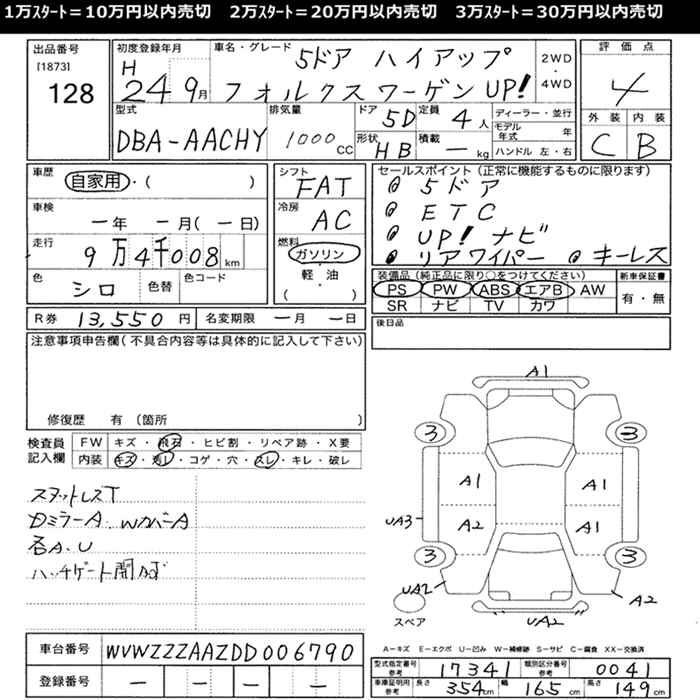 1万スタート＝10万円以内売切　2万スタート＝20万円以内売切　3万スタート＝30万円以内売切
出品番号
[1873]
128
初度登録年月
H
24 9月
車名・グレード
5ドア ハイアップ
フォルクスワーゲン UP!
2WD
・
4WD
評価点
4
外装 内装
C B
型式
DBA-AACHY
排気量
1000 CC
ドア 5D
形状 HB
定員 4人
積載 ー kg
ディーラー・並行
モデル年式 年
ハンドル 左・右
車歴
自家用・( )
車検
ー年 ー月(ー日)
走行
9万4千008 km
色
シロ
色替
色コード
シフト
FAT
冷房
AC
燃料
ガソリン
軽・油
( )
セールスポイント (正常に機能するものに限ります)
5ドア
ETC
UP!ナビ
リアワイパー キーレス
装備品 (純正品に限り○をつけてください)
PS PW ABS エアB AW
SR ナビ TV カワ
新車保証書
有・無
R券 13,550円
名変期限 ー月 ー日
後日品
注意事項申告欄 (不具合内容等は具体的に記入して下さい)
修復歴 有 (箇所 )
検査員
記入欄
FW キズ・飛石・ヒビ割・リペア跡・X要
内装 キズ・汚レ・コゲ・穴・スレ・キレ・破レ
スタットレスT
DミラーA WカバーA
各A.U
ハッチゲート開かず
A1
3 3
A1 A1
UA3 A2 A1
3 3
UA2 A2
スペア UA2
A−キズ E−エクボ U−凹み W−補修跡 S−サビ C−腐食 XX−交換済
車台番号 WVWZZZAAZDD006790
登録番号 ー ー ー ー
型式指定番号 参考 17341
類別区分番号 参考 0041
車庫証明用 参考 長さ 354cm 幅 165cm 高さ 149cm